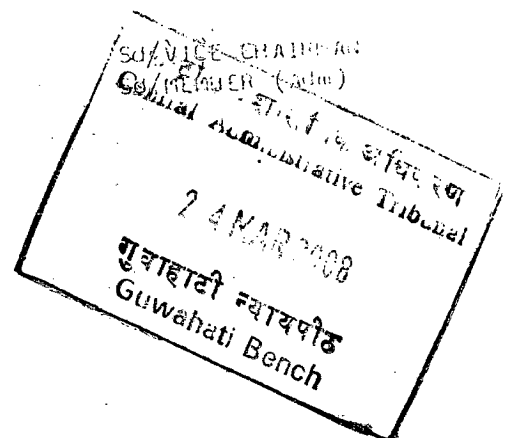 SD/VICE CHAIRMAN
SD/MEMBER (Adm)
अधिकरण
Central Administrative Tribunal
24 MAR 2008
गुवाहाटी न्यायपीठ
Guwahati Bench